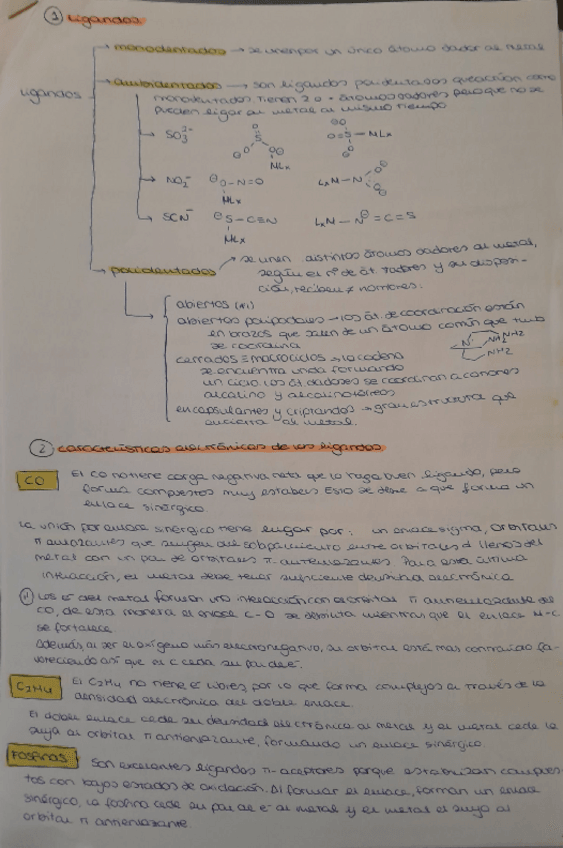 ① Ligandos
ligandos
monodentados → se unen por un único átomo dador al metal
ambidentados → son ligandos polidentados que actúan como
monodentados. Tienen 2 o + átomos dadores pero que no se
pueden ligar al metal al mismo tiempo
→ SO₃²⁻
O S O O
MLx
O=S-MLx
O
→ NO₂⁻ ⊖O-N=O LxM-N
MLx
→ SCN⁻ ⊖S-C≡N LxM-N=C=S
MLx
polidentados → se unen distintos átomos dadores al metal,
según el nº de át. dadores y su disposi-
ción, reciben ≠ nombres.
abiertos
abiertos polipodales → los át. de coordinación están
en brazos que salen de un átomo común que tmb
se coordina
N NH2 NH2 NH2
cerrados ≡ macrociclos → la cadena
se encuentra unida formando
un ciclo los át. dadores se coordinan a cationes
alcalino y alcalinotérreos
encapsulantes y criptandos → gran estructura que
encierra al metal.
② características electrónicas de los ligandos
CO El CO no tiene carga negativa neta que lo haga buen ligando, pero
forma compuestos muy estables Esto se debe a que forma un
enlace sinérgico.
La unión por enlace sinérgico tiene lugar por: un enlace sigma, orbitales
π enlazantes que surgen del solapamiento entre orbitales d llenos del
metal con un par de orbitales π antienlazantes. Para esta última
interacción, el metal debe tener suficiente densidad electrónica
Los e⁻ del metal forman una interacción con el orbital π antienlazante del
CO, de esta manera el enlace C-O se debilita mientras que el enlace M-C
se fortalece
Además, al ser el oxígeno más electronegativo, su orbital está más contraído fa-
voreciendo así que el C ceda su par de e⁻.
C2H4 El C2H4 no tiene e⁻ libres, por lo que forma complejos a través de la
densidad electrónica del doble enlace.
El doble enlace cede su densidad electrónica al metal y el metal cede la
suya al orbital π antienlazante, formando un enlace sinérgico.
Fosfinas Son excelentes ligandos π-aceptores porque estabilizan compues-
tos con bajos estados de oxidación. Al formar el enlace, forman un enlace
sinérgico, la fosfina cede su par de e⁻ al metal y el metal el suyo al
orbital π antienlazante.